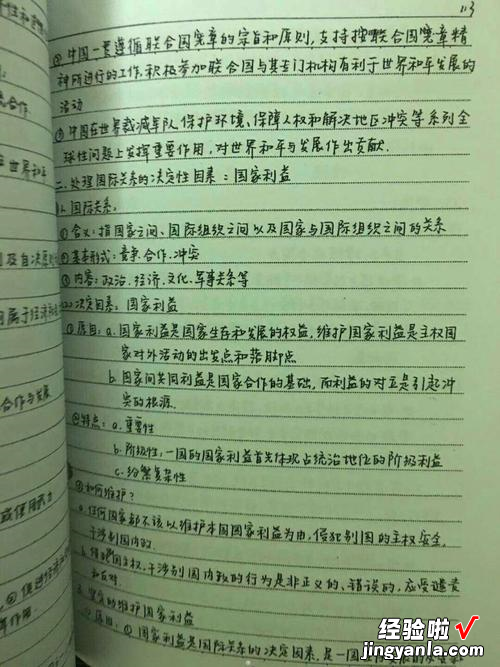 113
② 中国一贯遵循联合国宪章的宗旨和原则，支持按联合国宪章精
神所进行的工作，积极参加联合国与其专门机构有利于世界和平发展的
活动
③ 中国在世界裁减军队，保护环境，保障人权和解决地区冲突等系列全
球性问题上发挥重要作用，对世界和平与发展作出贡献．
二、处理国际关系的决定性因素：国家利益
1. 国际关系。
① 含义：指国家之间、国际组织之间以及国家与国际组织之间的关系
② 基本形式：竞争．合作．冲突
③ 内容：政治．经济．文化、军事关系等
决定因素：国家利益
① 原因：a. 国家利益是国家生存和发展的权益，维护国家利益是主权国
家对外活动的出发点和落脚点
b. 国家间共同利益是国家合作的基础，而利益的对立是引起冲
突的根源．
② 特点：a. 重要性
b. 阶级性：一国的国家利益首先体现占统治地位的阶级利益
c. 纷繁复杂性
③ 如何维护？
a. 任何国家都不该以维护本国国家利益为由，侵犯别国的主权安全．
干涉别国内政．
b. 侵犯国主权，干涉别国内政的行为是非正义的、错误的，应受谴责
和反对．
3. 坚定的维护国家利益
原因：① 国家利益是国际关系的决定因素，是一国
合作
世界和平
及自决原则
属于经济
合作与发展
或使用武力
作用．
经验啦√
jingyanla.com